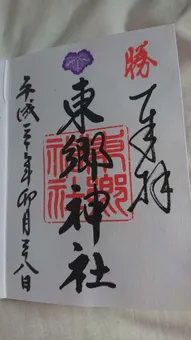 勝
奉拝
東郷神社
東郷神社
平成三十年卯月八日